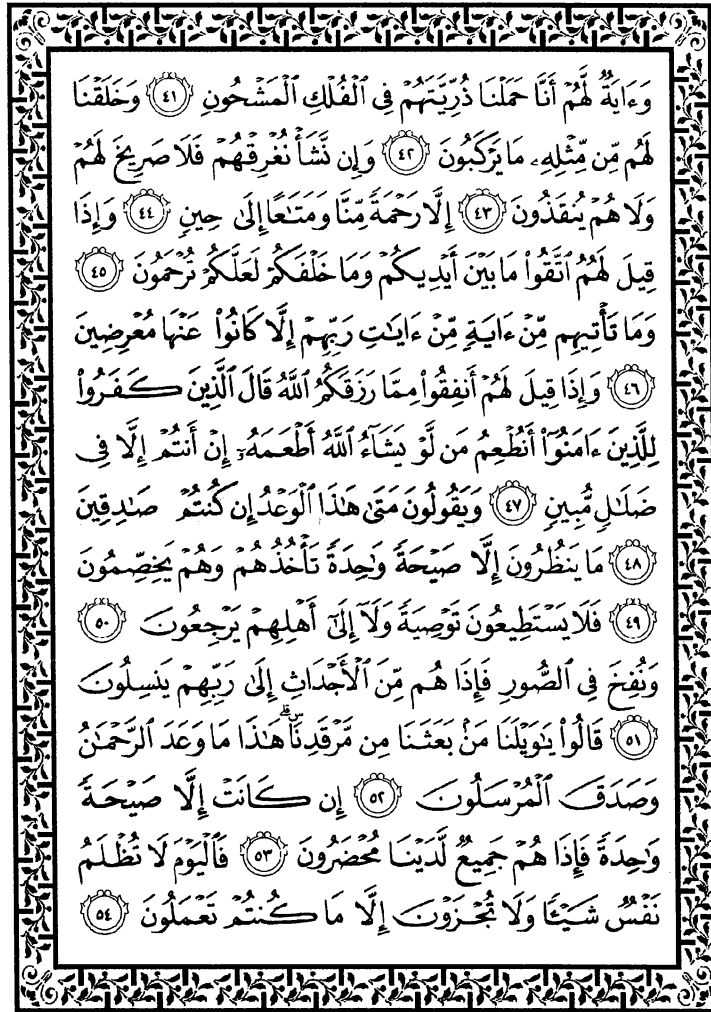 وَءَايَةٌ لَّهُمْ أَنَّا حَمَلْنَا ذُرِّيَّتَهُمْ فِي ٱلْفُلْكِ ٱلْمَشْحُونِ ٤١ وَخَلَقْنَا
لَهُم مِّن مِّثْلِهِۦ مَا يَرْكَبُونَ ٤٢ وَإِن نَّشَأْ نُغْرِقْهُمْ فَلَا صَرِيخَ لَهُمْ
وَلَا هُمْ يُنقَذُونَ ٤٣ إِلَّا رَحْمَةً مِّنَّا وَمَتَٰعًا إِلَىٰ حِينٍ ٤٤ وَإِذَا
قِيلَ لَهُمُ ٱتَّقُوا۟ مَا بَيْنَ أَيْدِيكُمْ وَمَا خَلْفَكُمْ لَعَلَّكُمْ تُرْحَمُونَ ٤٥
وَمَا تَأْتِيهِم مِّنْ ءَايَةٍ مِّنْ ءَايَٰتِ رَبِّهِمْ إِلَّا كَانُوا۟ عَنْهَا مُعْرِضِينَ
٤٦ وَإِذَا قِيلَ لَهُمْ أَنفِقُوا۟ مِمَّا رَزَقَكُمُ ٱللَّهُ قَالَ ٱلَّذِينَ كَفَرُوا۟
لِلَّذِينَ ءَامَنُوٓا۟ أَنُطْعِمُ مَن لَّوْ يَشَآءُ ٱللَّهُ أَطْعَمَهُۥٓ إِنْ أَنتُمْ إِلَّا فِي
ضَلَٰلٍ مُّبِينٍ ٤٧ وَيَقُولُونَ مَتَىٰ هَٰذَا ٱلْوَعْدُ إِن كُنتُمْ صَٰدِقِينَ
٤٨ مَا يَنظُرُونَ إِلَّا صَيْحَةً وَٰحِدَةً تَأْخُذُهُمْ وَهُمْ يَخِصِّمُونَ
٤٩ فَلَا يَسْتَطِيعُونَ تَوْصِيَةً وَلَآ إِلَىٰٓ أَهْلِهِمْ يَرْجِعُونَ ٥٠
وَنُفِخَ فِي ٱلصُّورِ فَإِذَا هُم مِّنَ ٱلْأَجْدَاثِ إِلَىٰ رَبِّهِمْ يَنسِلُونَ
٥١ قَالُوا۟ يَٰوَيْلَنَا مَنۢ بَعَثَنَا مِن مَّرْقَدِنَا ۜ ۗ هَٰذَا مَا وَعَدَ ٱلرَّحْمَٰنُ
وَصَدَقَ ٱلْمُرْسَلُونَ ٥٢ إِن كَانَتْ إِلَّا صَيْحَةً
وَٰحِدَةً فَإِذَا هُمْ جَمِيعٌ لَّدَيْنَا مُحْضَرُونَ ٥٣ فَٱلْيَوْمَ لَا تُظْلَمُ
نَفْسٌ شَيْـًٔا وَلَا تُجْزَوْنَ إِلَّا مَا كُنتُمْ تَعْمَلُونَ ٥٤